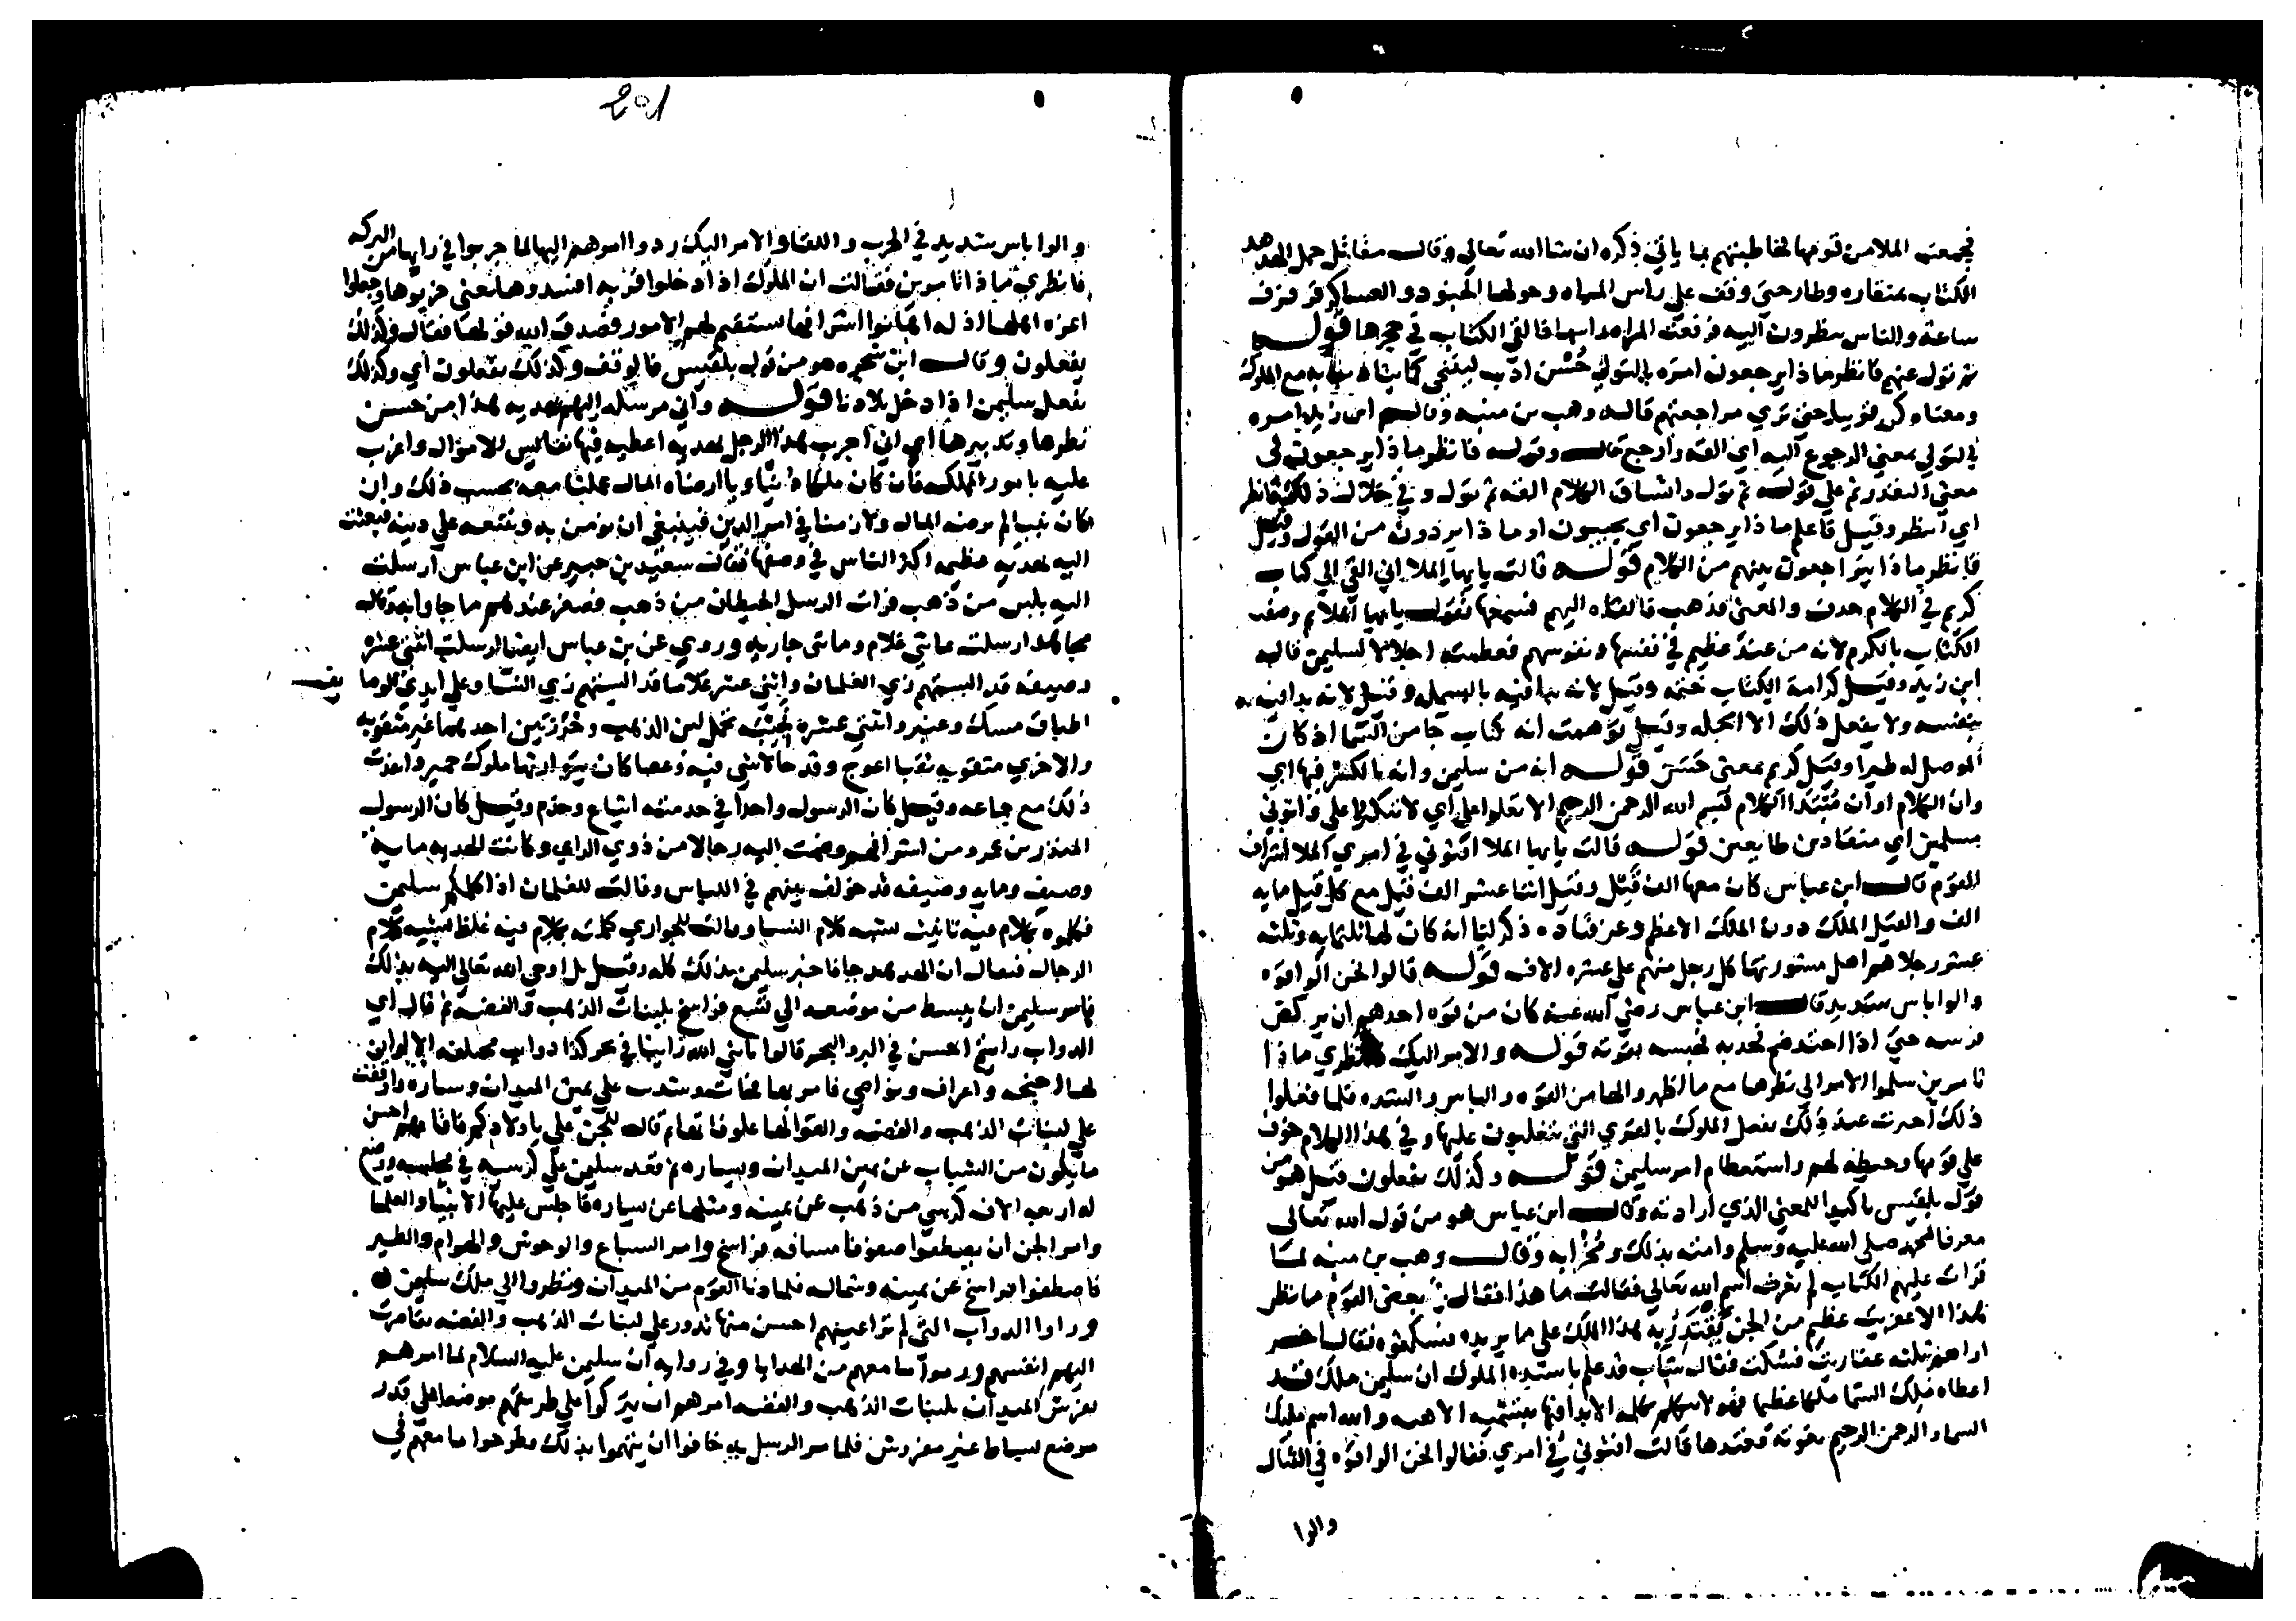 فجمعت الملا من قومها تخاطبهم بما ياتي ذكره ان شا الله تعالي وقال مقاتل حمل الهدهد
الكتاب بمنقاره وطار حتي وقف علي راس المراه وحولها الجنود والعساكر فرفرف
ساعة والناس ينظرون اليه فرفعت المراه راسها فالقي الكتاب في حجرها قوله
ثم تول عنهم فانظر ماذا يرجعون امره بالتولي حُسْن ادب ليتنحي مع الملوك
ومعناه وكن قريبا حتي تري مراجعتهم قاله وهب بن منبه وقال ابن زيد امره
في التولي بمعني الرجوع اليه اي القه وارجع قال وقوله فانظر ماذا يرجعون في
معني التقدير ثم علي قوله ثم تول واتساق الكلام القه ثم تول وفي خلال ذلك فانظر
اي انتظر وقيل فاعلم ماذا يرجعون اي يجيبون او ماذا يردون من القول وقيل
فانظر ماذا يتراجعون بينهم من الكلام قوله قالت يايها الملا اني القي الي كتاب
كريم في الكلام حذف والمعني فذهب فالقاه اليهم فسمعها تقول يايها الملا ثم وصفت
الكتاب بالكرم لانه من عند عظيم في نفسها ونفوسهم فعظمته اجلالا لسليمن قاله
ابن زيد وقيل كرامة الكتاب ختمه وقيل لانه بدا فيه بالبسمله وقيل لانه بدا فيه
بنفسه ولا يفعل ذلك الا الجله وقيل توهمت انه كتاب جا من السما اذ كان
الموصل له طيرا وقيل كريم بمعني حَسَن قوله انه من سليمن وانه بالكسر فيها اي
وان الكلام او ان مُبْتَدا الكلام بسم الله الرحمن الرحيم الا تعلوا علي اي لا تتكبروا علي واتوني
مسلمين اي منقادين طايعين قوله قالت يايها الملا افتوني في امري الملا اشراف
القوم قال ابن عباس كان معها الف قَيْل وقيل اثنا عشر الف قيل مع كل قيل مايه
الف والقيل الملك دون الملك الاعظم وعن قتاده ذكر لنا انه كان لها ثلثمايه وثلثه
عشر رجلا هم اهل مشورتها كل رجل منهم علي عشره الاف قوله قالوا نحن الوا قوه
والوا باس شديد قال ابن عباس رضي الله عنه كان من قوه احدهم ان يركض
فرسه حتي اذا احتد ضم فخديه فحبسه بقوته قوله والامر اليك فانظري ماذا
تامرين سلموا الامر الي نظرها مع ما اظهروا لها من القوه والباس والشده فلما فعلوا
ذلك اخبرت عند ذلك بفعل الملوك بالقري التي يتغلبون عليها وفي هذا الكلام خوف
علي قومها وحيطه لهم واستعظام امر سليمن قوله وكذلك يفعلون قيل هو من
قول بلقيس تاكيدا للمعني الذي ارادته وقال ابن عباس هو من قول الله تعالي
معرفا لمحمد صلي الله عليه وسلم وامته بذلك ومُخْبِرًا به وقال وهب بن منبه لما
قرات عليهم الكتاب لم تعرف اسم الله تعالي فقالت ما هذا فقال بعض القوم ما نظن
هذا الا عفريت عظيم من الجن يَقْتَدِر به هذا الملك علي ما يريده فسكتوه فقال اخر
اراهم ثلثه عفاريت فسكت فقال شاب قد علم يا سيده الملوك ان سليمن ملك قد
اعطاه ملك السما ملكا عظيما فهو لا يتكلم بكلمه الا بدا فيها بتسميه الاهه والله اسم مليك
السما والرحمن الرحيم نعوته فعندها قالت افتوني في امري فقالوا نحن الوا قوه في القتال
والوا
201
والوا باس شديد في الحرب واللقا والامر اليك ردوا امرهم اليها لما جربوا في رايها من البركه
فانظري ماذا تامرين فقالت ان الملوك اذا دخلوا قريه افسدوها يعني خربوها وجعلوا
اعزه اهلها اذله اهانوا اشرافها لتستقيم لهم الامور فصدق الله قولها فقال وكذلك
يفعلون وقال ابن شجره هو من قول بلقيس فالوقف وكذلك يفعلون اي وكذلك
يفعل سليمن اذا دخل بلادنا قوله واني مرسله اليهم بهديه هذا من حسن
نظرها وتدبيرها اي اني اجرب هذا الرجل بهديه اعطيه فيها نفايس الاموال واغرب
عليه بامور المملكه فان كان ملكا دُنْيَاويا ارضاه المال عملنا معه بحسب ذلك وان
كان نبيا لم يرضه المال ولازمنا في امر الدين فينبغي ان نومن به ونتبعه علي دينه فبعثت
اليه بهديه عظيمه اكثر الناس في وصفها فقال سعيد بن جبير عن ابن عباس ارسلت
اليه بلبن من ذهب فرات الرسل الحيطان من ذهب فصغر عندهم ما جاوا به وقال
مجاهد ارسلت مايتي غلام ومايتي جاريه وروي عن بن عباس ايضا ارسلت اثنتي عشره
وصيفه قد البستهم زي الغلمان واثني عشر غلاما قد البستهم زي النسا وعلي ايدي الوصايف
اطباق مسك وعنبر واثنتي عشره نُجِيْبَه تحمل لبن الذهب وخَرَزتين احدهما غير مثقوبه
والاخري مثقوبه ثقبا اعوج وقدحا لا شي فيه وعصا كان يتوارثها ملوك حمير وانفذت
ذلك مع جماعه وقيل كان الرسول واحدا في خدمته اتباع وخدم وقيل كان الرسول
المنذر بن عمرو من اشرافهم وضمت اليه رجالا من ذوي الراي وكانت الهديه مايه
وصيف ومايه وصيفه قد خولف بينهم في اللباس وقالت للغلمان اذا كلمكم سليمن
فكلموه بكلام فيه تانيث شبه كلام النسا وقالت للجواري كلمنه بكلام فيه غلظ شبيه كلام
الرجال فيقال ان الهدهد جا فاخبر سليمن بذلك كله وقيل بل اوحي الله تعالي اليه بذلك
فامر سليمن ان يبسط من موضعه الي تسع فراسخ بلبنات الذهب والفضه ثم قال اي
الدواب رايتم احسن في البر والبحر قالوا يا نبي الله راينا في بحر كذا دواب مختلفه الالوان
لها اجنحه واعراف ونواصي فامر بها فجات وشدت علي يمين الميدان ويساره واوقفت
علي لبنات الذهب والفضه والقوا لها علوفاتها ثم قال للجن علي باولادكم فاقامهم احسن
ما يكون من الشباب عن يمين الميدان ويساره ثم قعد سليمن علي كرسيه في مجلسه ووضع
له اربعه الاف كرسي من ذهب عن يمينه ومثلها عن يساره فاجلس عليها الانبيا والعلما
وامر الجن ان يصطفوا صفوفا مسافه فراسخ وامر السباع والوحوش والهوام والطير
فاصطفوا فراسخ عن يمينه وشماله فلما دنا القوم من الميدان ونظروا الي ملك سليمن
وراوا الدواب التي لم تر اعينهم احسن منها تدور علي لبنات الذهب والفضه تقاصرت
اليهم انفسهم ورموا ما معهم من الهدايا وفي روايه ان سليمن عليه السلام لما امرهم
بفرش الميدان بلبنات الذهب والفضه امرهم ان يتركوا علي طريقهم موضعا علي قدر
موضع بساط غير مفروش فلما مر الرسل به خافوا ان يتهموا بذلك فطرحوا ما معهم في